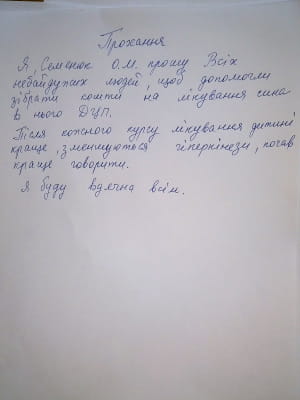 Прохання
Я, Семенюк О.М. прошу Всіх
небайдужих людей, щоб допомогли
зібрати кошти на лікування сина
в нього ДЦП.
Після кожного курсу лікування дитині
краще, зменшуються гіперкінези, почав
краще говорити.
Я буду вдячна всім.